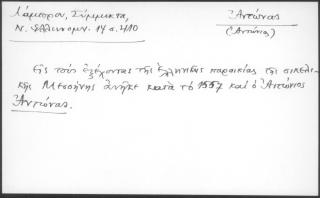 Λάμπρου, Σύμμικτα,
Ν. Ἑλληνομν. 14 σ. 410
Ἀντώνας
(Ἀντώνιος)
Εἰς τοὺς ἄρχοντας τῆς ἑλληνικῆς παροικίας τῆς σικελι-
κῆς Μεσσήνης ἀνῆκε κατὰ τὸ 1557 καὶ ὁ Ἀντώνιος
Ἀντώνας.